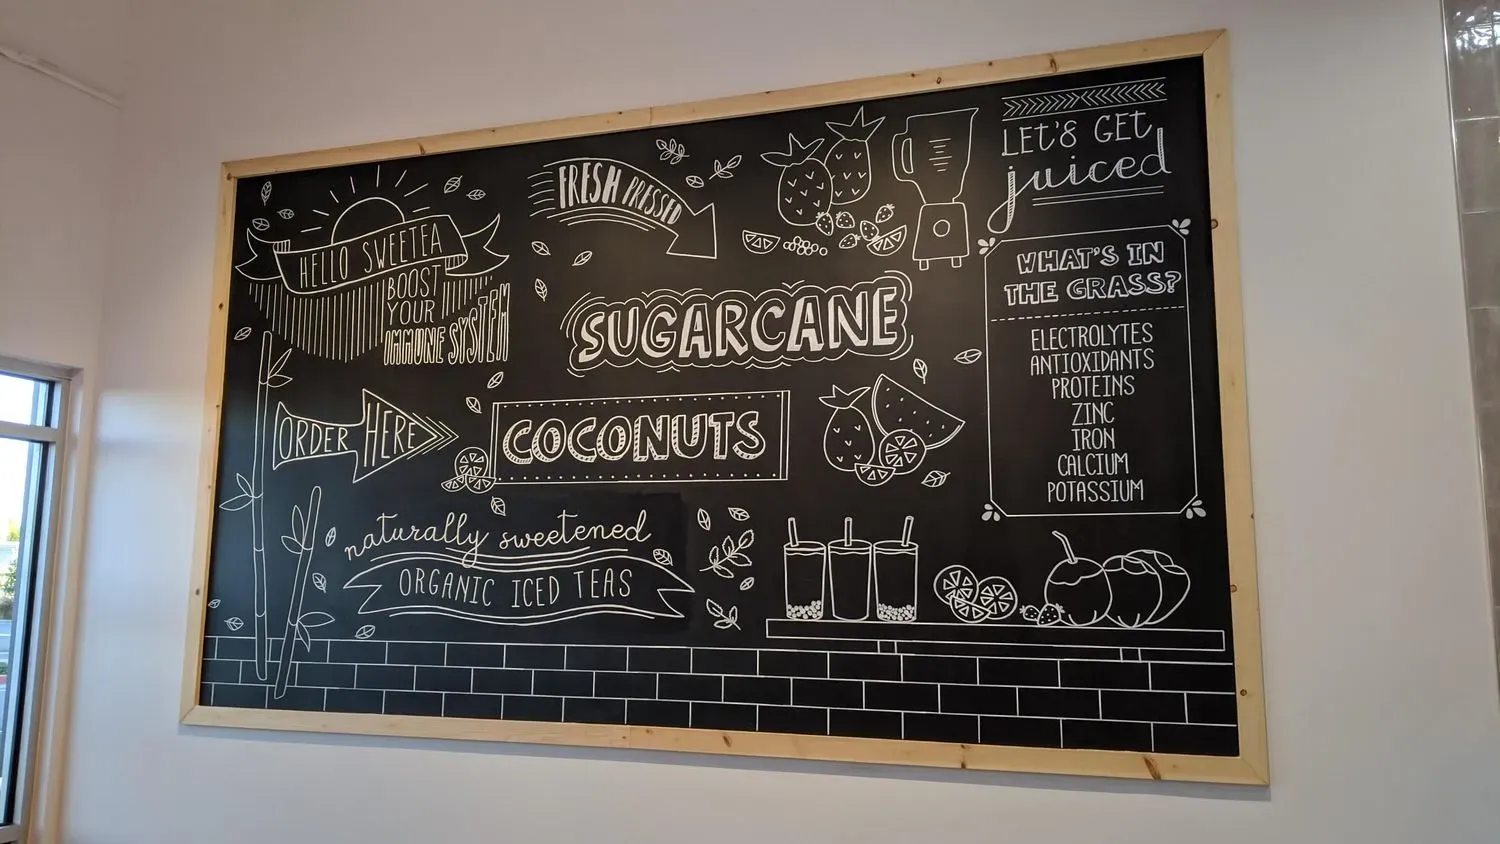 HELLO SWEETEA
BOOST
YOUR
IMMUNE SYSTEM
FRESH PRESSED
LET'S GET
juiced
SUGARCANE
ORDER HERE
COCONUTS
naturally sweetened
ORGANIC ICED TEAS
WHAT'S IN
THE GRASS?
ELECTROLYTES
ANTIOXIDANTS
PROTEINS
ZINC
IRON
CALCIUM
POTASSIUM